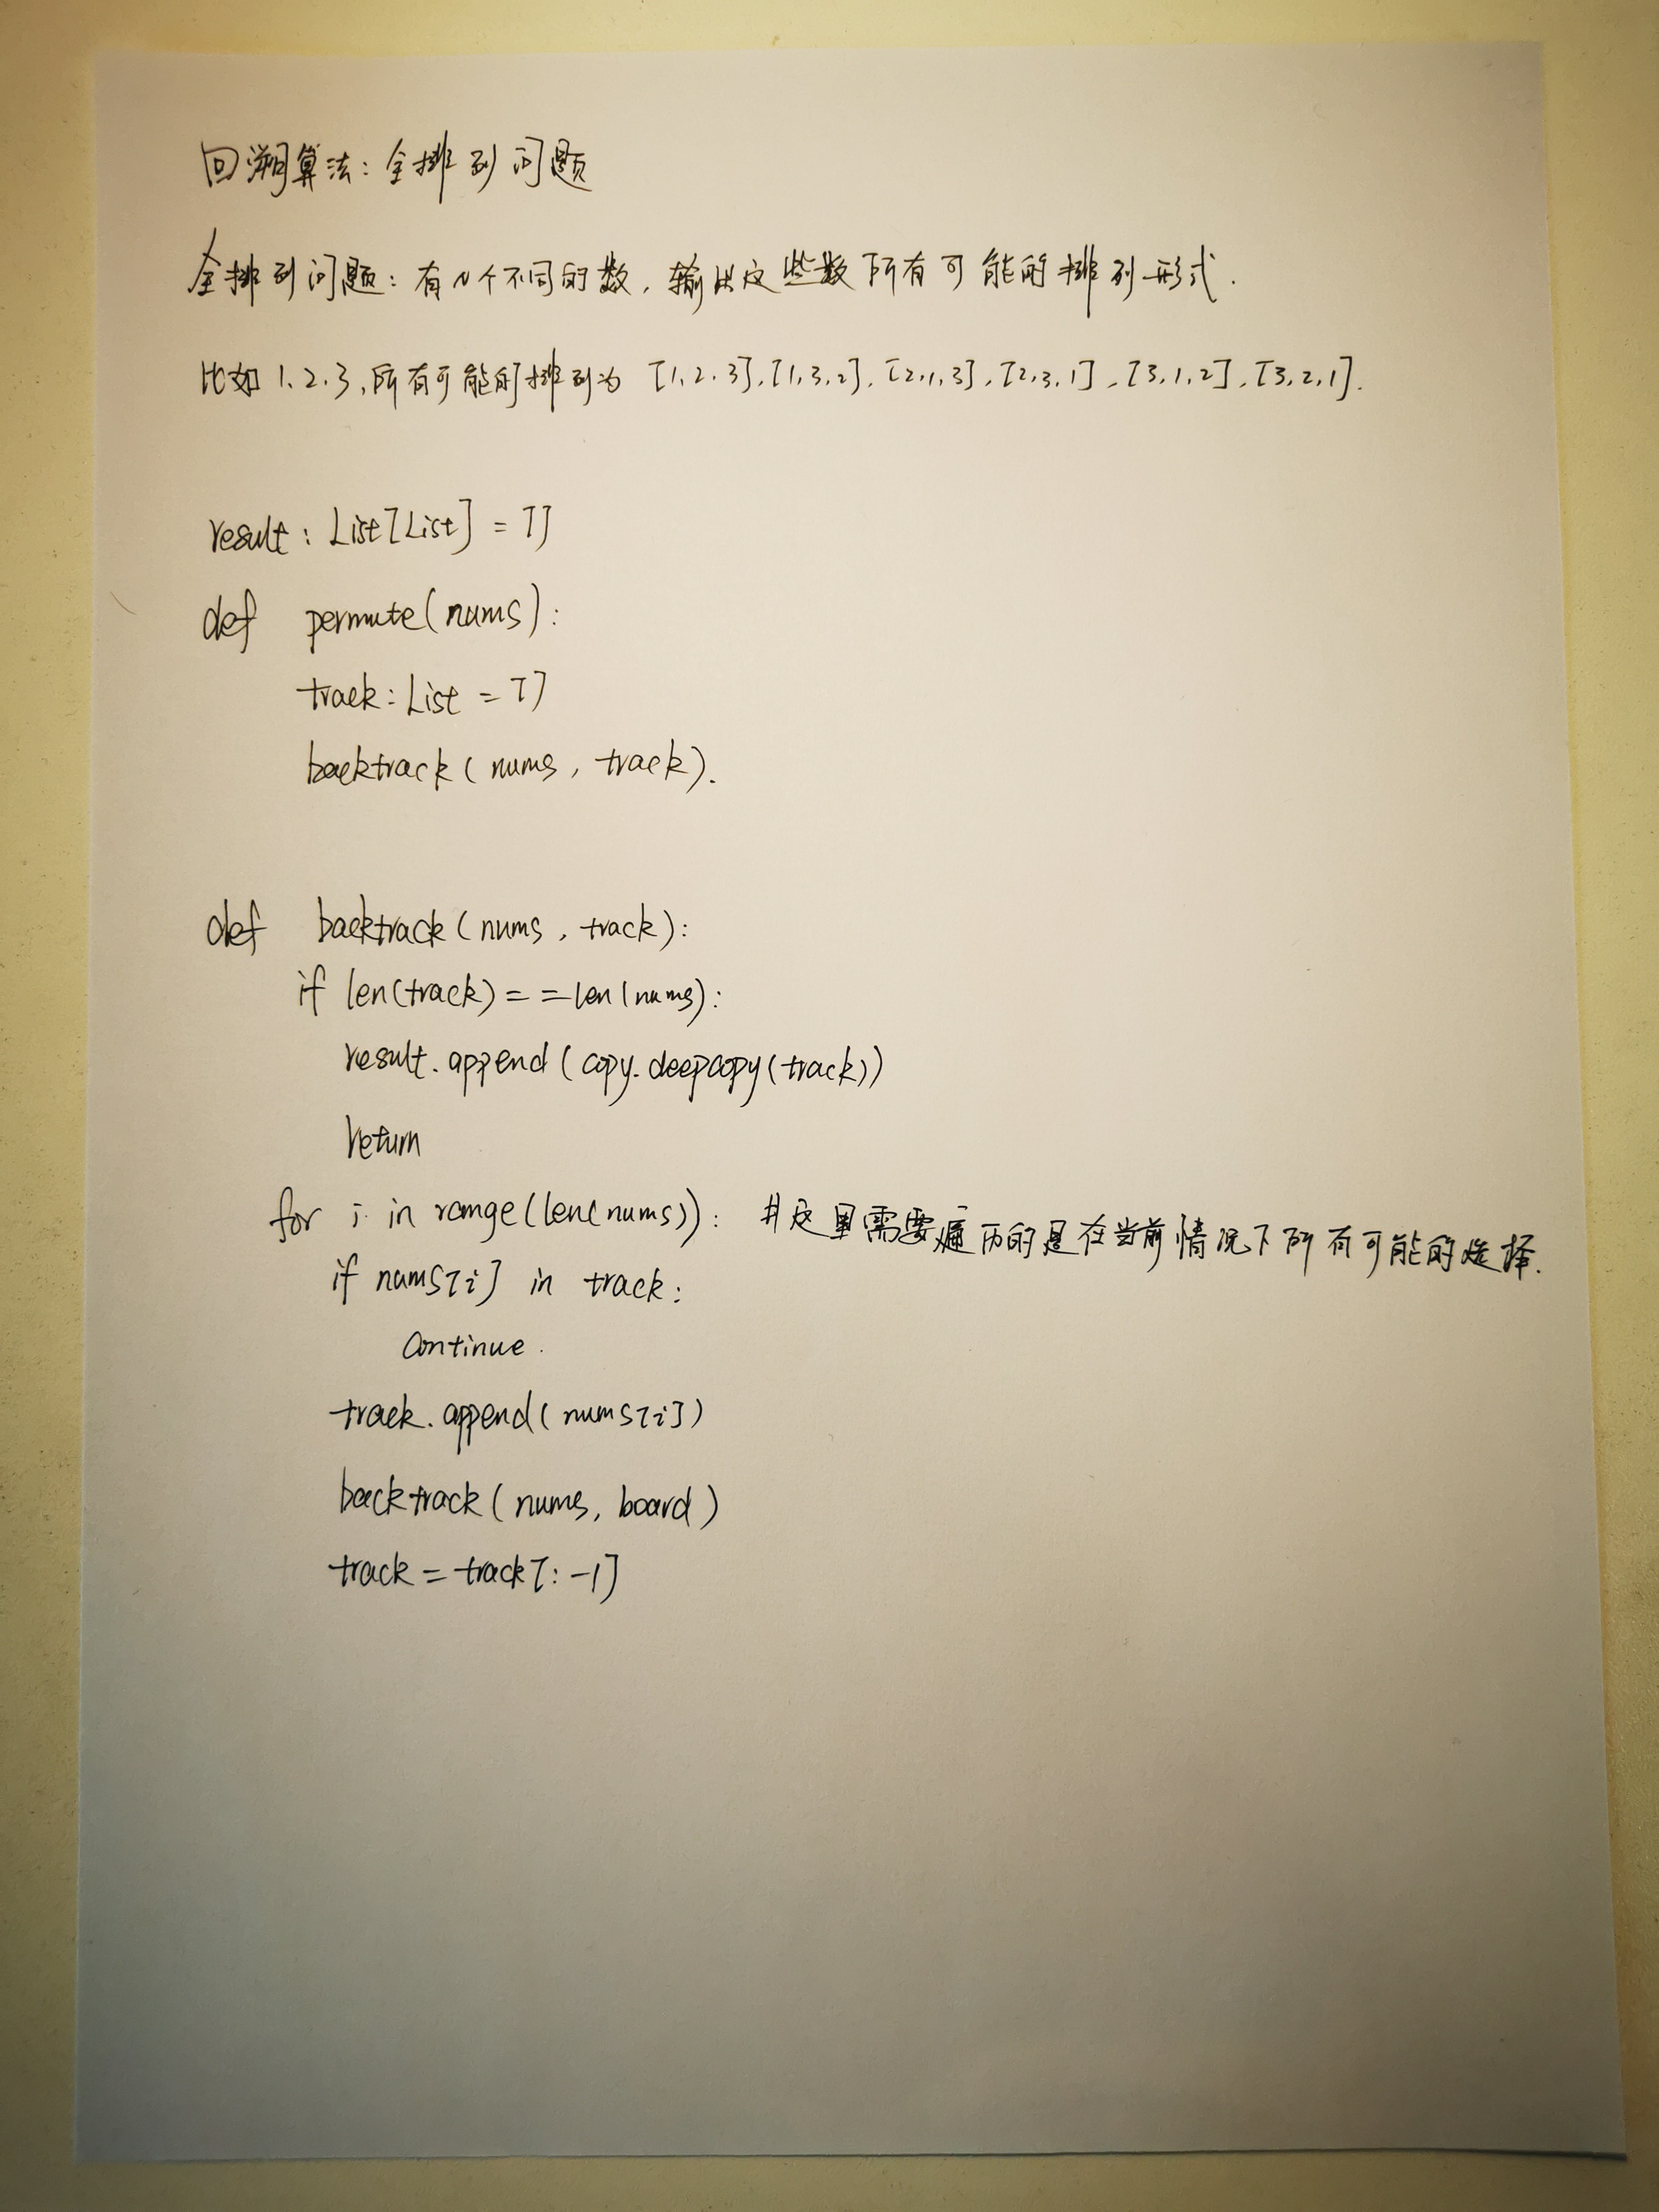 回溯算法：全排列问题
全排列问题：有N个不同的数，输出这些数所有可能的排列形式.
比如1.2.3,所有可能的排列为 [1,2,3],[1,3,2],[2,1,3],[2,3,1],[3,1,2],[3,2,1].
result: List[List] = []
def permute(nums):
track: List = []
backtrack(nums, track).
def backtrack(nums, track):
if len(track) == len(nums):
result.append(copy.deepcopy(track))
return
for i in range(len(nums)): #这里需要遍历的是在当前情况下所有可能的选择.
if nums[i] in track:
continue.
track.append(nums[i])
backtrack(nums, board)
track = track[:-1]